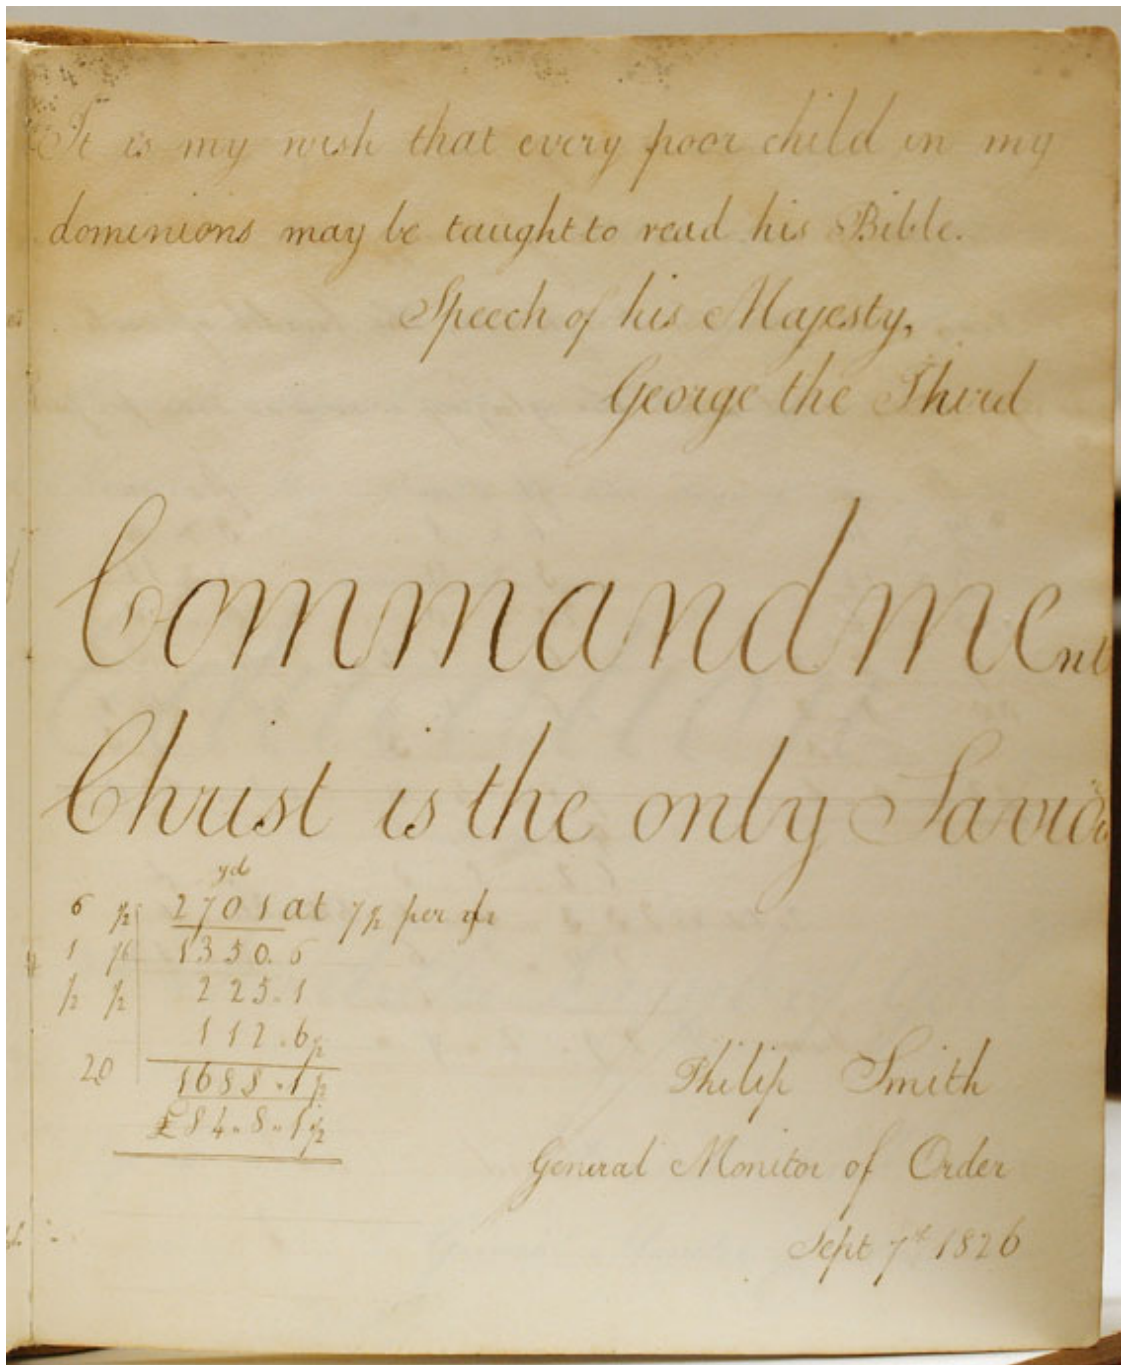 It is my wish that every poor child in my
dominions may be taught to read his Bible.
Speech of his Majesty,
George the Third
Commandment
Christ is the only Savio
yd
6 1/2 2701 at 7 1/2 per
1 1/6 1350.6
1/2 1/2 225.1
112.6 1/2
20 1688.1 1/2
£84.8.1 1/2
Philip Smith
General Monitor of Order
Sept 7th 1826